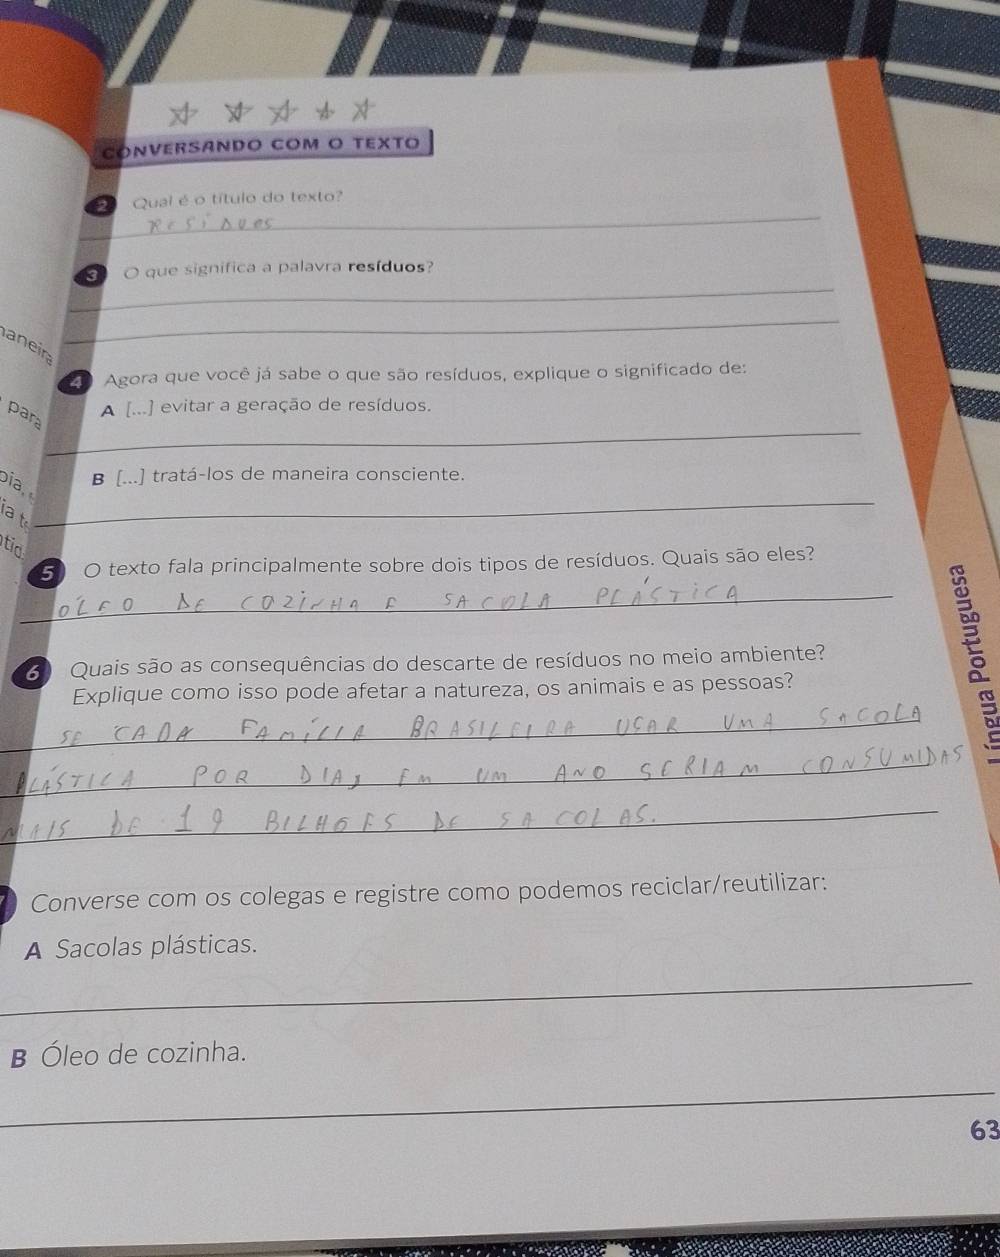 CONVERSANDO COM O TEXTO
2 Qual é o título do texto?
RESIDUES
3 O que significa a palavra resíduos?
aneira
4 Agora que você já sabe o que são resíduos, explique o significado de:
para
A [...] evitar a geração de resíduos.
B [...] tratá-los de maneira consciente.
5 O texto fala principalmente sobre dois tipos de resíduos. Quais são eles?
OLEO DE COZINHA E SACOLA PLÁSTICA
6 Quais são as consequências do descarte de resíduos no meio ambiente?
Explique como isso pode afetar a natureza, os animais e as pessoas?
SE CADA FAMÍLIA BRASILEIRA USAR UMA SACOLA
PLÁSTICA POR DIA, EM UM ANO SERIAM CONSUMIDAS
MAIS DE 19 BILHOES DE SACOLAS.
Converse com os colegas e registre como podemos reciclar/reutilizar:
A Sacolas plásticas.
B Óleo de cozinha.
Língua Portuguesa
63